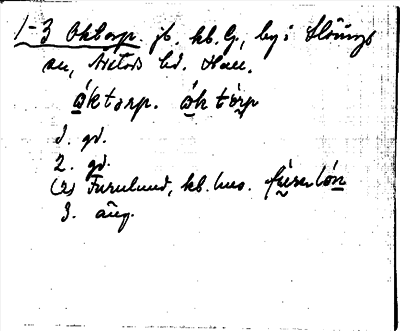 1-3 Oktorp. jb. kb. G, by i Slöinge
sn, Årstads hd. Hall.
åktorp. åk tòrp
1. gd.
2. gd.
(2) Furulund, kb. hus.
3. äng.